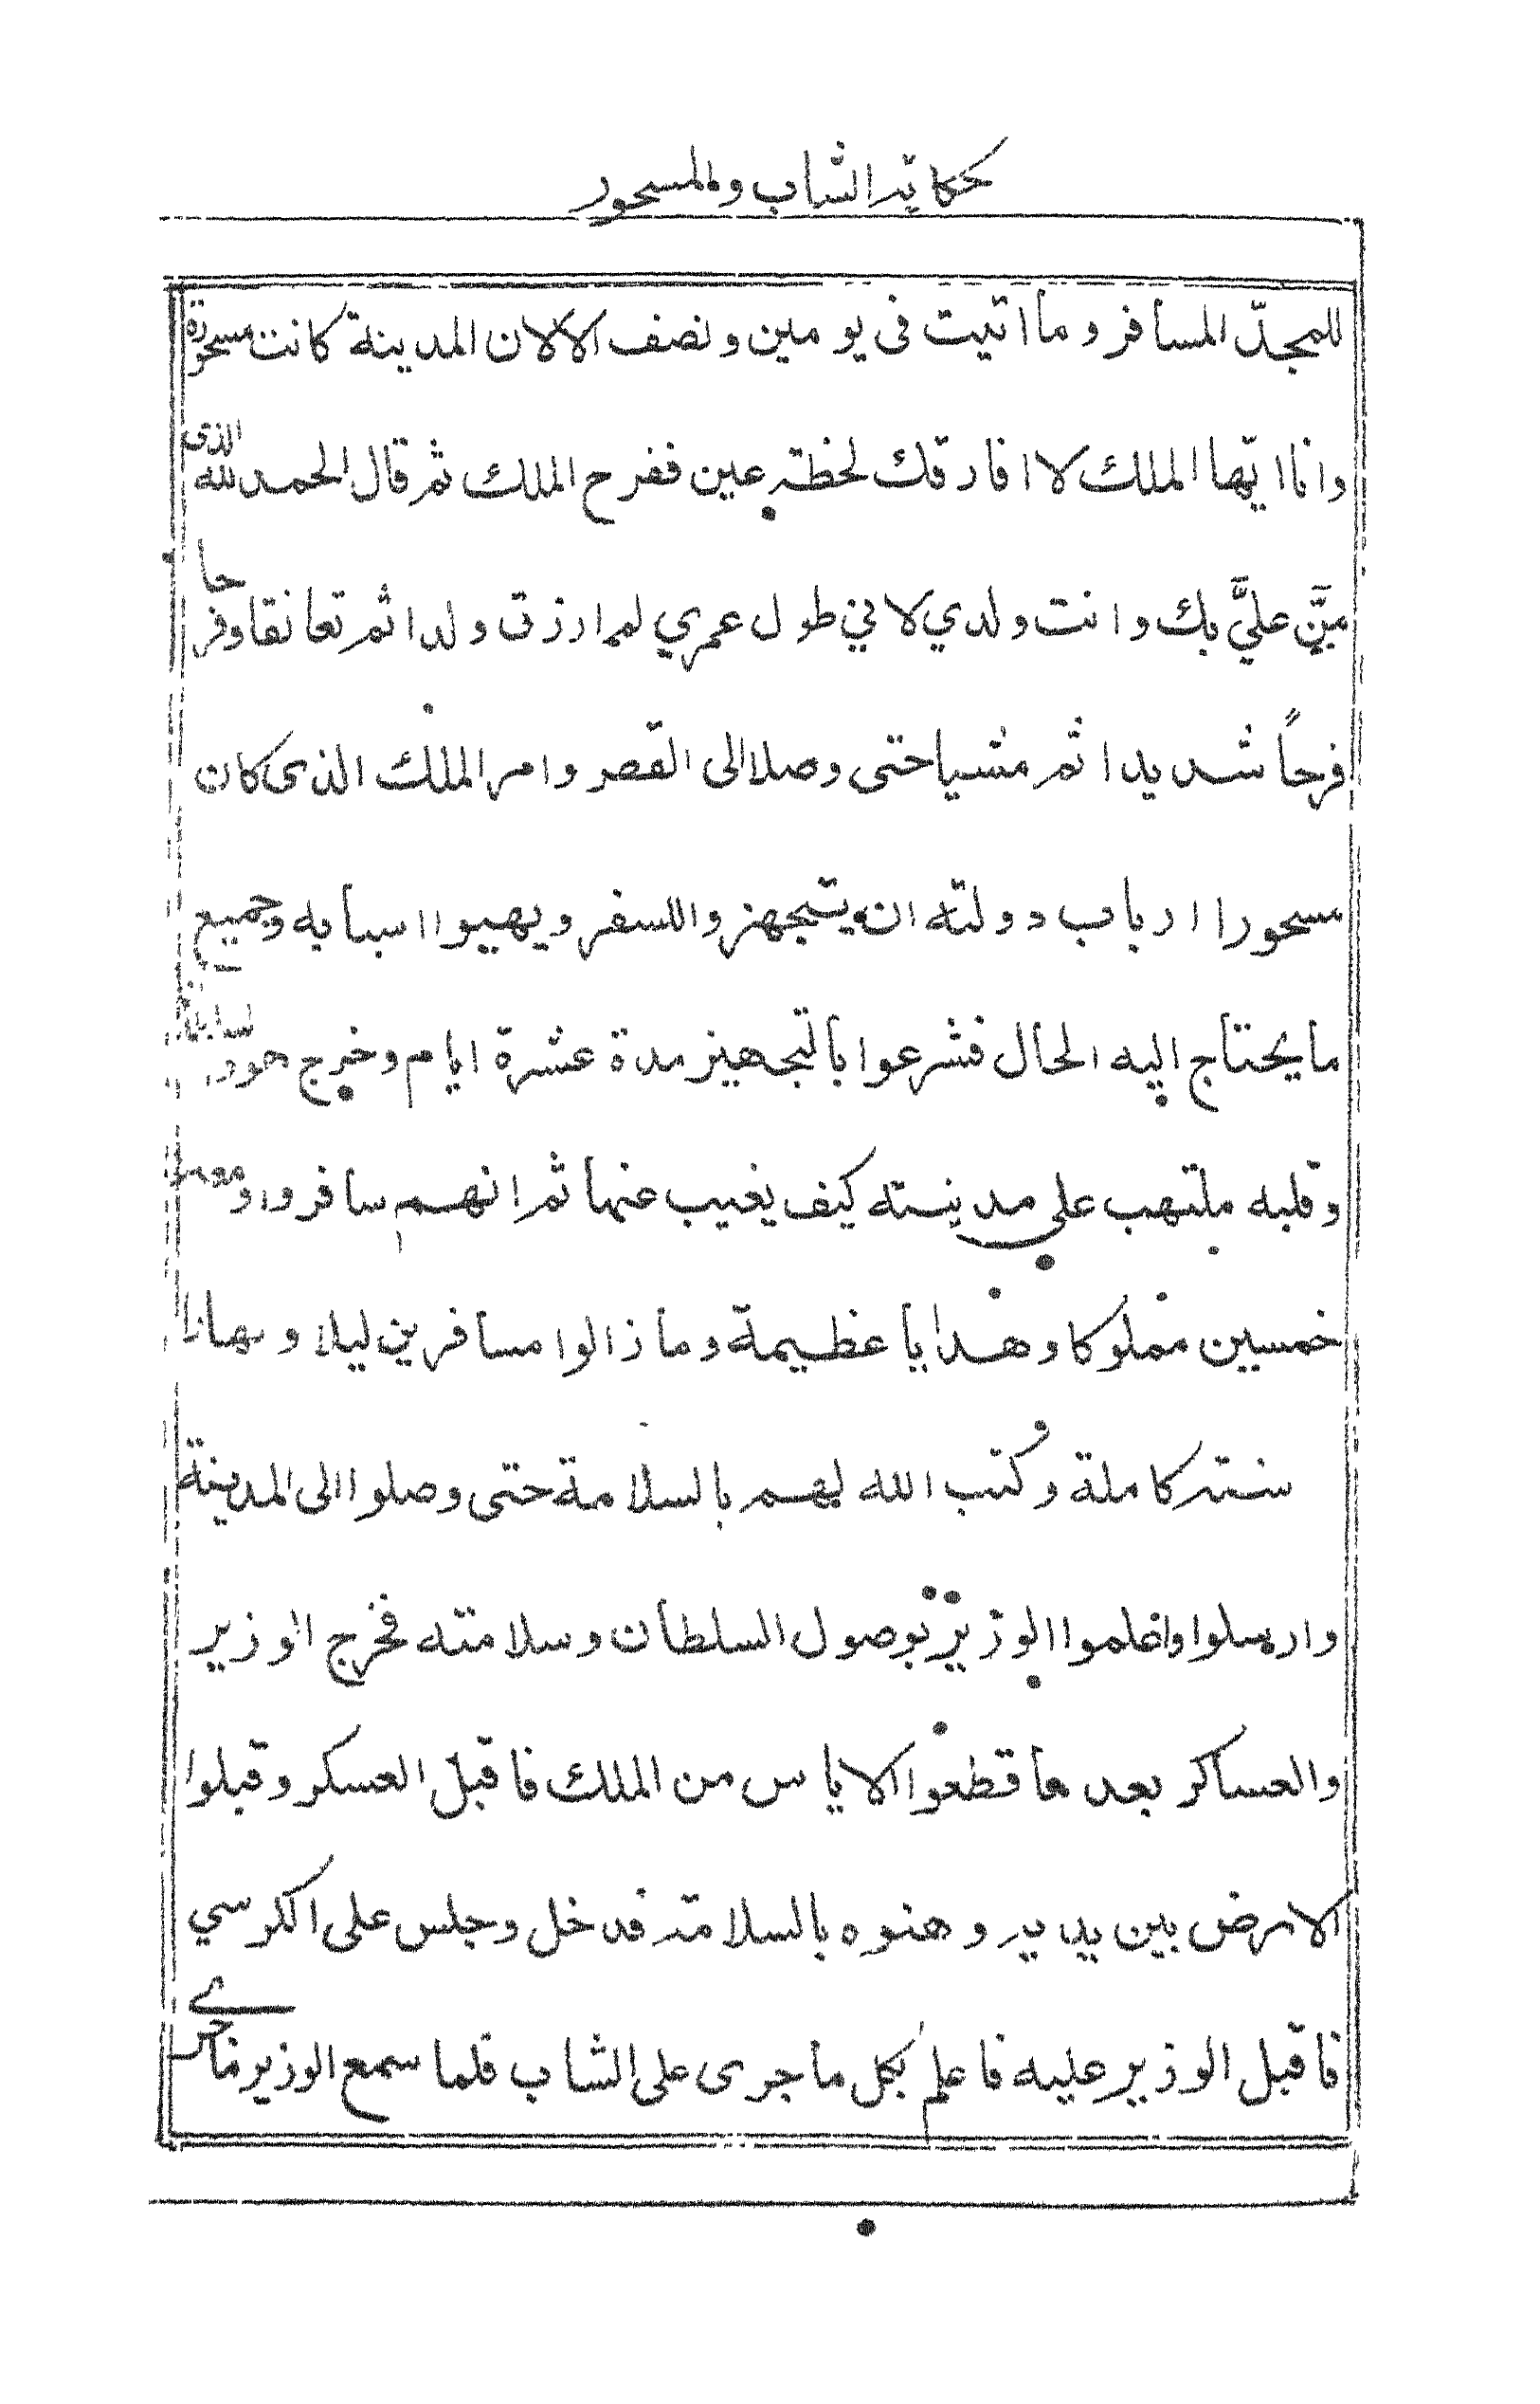 حكاية الشاب والمسحور
للمجدّ المسافر وما اتيت فى يومين ونصف الا لان المدينة كانت مسحورة
وانا ايّها الملك لا افارقك لحظة عين ففرح الملك ثم قال الحمد لله الذى
مَنَّ عليَّ بك وانت ولدي لاني طول عمري لم ارزق ولدا ثم تعانقا وفرحا
فرحاً شديدا ثم مشيا حتى وصلا الى القصر وامر الملك الذى كان
مسحورا ارباب دولته ان يتجهزوا للسفر ويهيوا اسبابه وجميع
ما يحتاج اليه الحال فشرعوا بالتجهيز مدة عشرة ايام وخرج هو
وقلبه ملتهب على مدينته كيف يغيب عنها ثم انهم سافروا ومعهم
خمسين مملوكا وهدايا عظيمة وما زالوا مسافرين ليلا ونهارا
سنة كاملة وكتب الله لهم بالسلامة حتى وصلوا الى المدينة
وارسلوا واعلموا الوزير بوصول السلطان وسلامته فخرج الوزير
والعساكر بعد ما قطعوا الاياس من الملك فاقبل العسكر وقبلوا
الارض بين يديه وهنوه بالسلامة فدخل وجلس على الكرسي
فاقبل الوزير عليه فاعلم بكل ما جرى على الشاب فلما سمع الوزير ما جرى